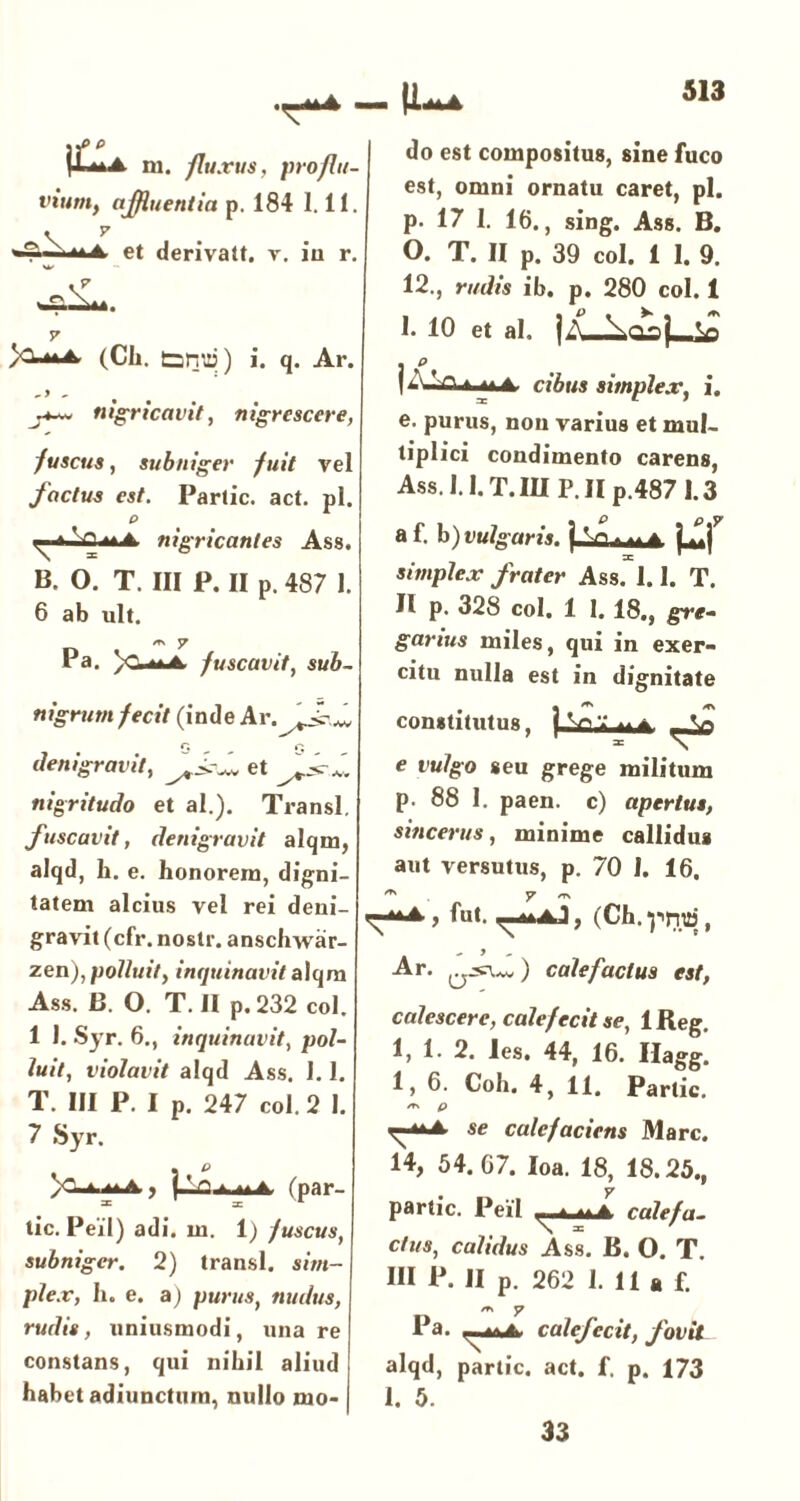 513
ܫܚܠܐ — ܫܚܢ.
ܫܚܠܐ m. fluxus, proflu-
vium, affluentia p. 184 l. 11.
ܫܚܠܦ et derivatt. v. in r.
ܚܠܦ.
ܫܚܡ (Ch. שחם) i. q. Ar.
سحم nigricavit, nigrescere,
fuscus, subniger fuit vel
factus est. Partic. act. pl.
ܫܚܝܡܝܢ nigricantes Ass.
B. O. T. III P. II p. 487 l.
6 ab ult.
Pa. ܫܚܡ fuscavit, sub-
nigrum fecit (inde Ar. سخم
denigravit, سخم et سحم
nigritudo et al.). Transl.
fuscavit, denigravit alqm,
alqd, h. e. honorem, digni-
tatem alcius vel rei deni-
gravit (cfr. nostr. anschwär-
zen), polluit, inquinavit alqm
Ass. B. O. T. II p. 232 col.
1 l. Syr. 6., inquinavit, pol-
luit, violavit alqd Ass. l. l.
T. III P. I p. 247 col. 2 l.
7 Syr.
ܫܚܝܡ, ܫܚܝܡܐ (par-
tic. Peïl) adi. m. 1) fuscus,
subniger. 2) transl. sim-
plex, h. e. a) purus, nudus,
rudis, uniusmodi, una re
constans, qui nihil aliud
habet adiunctum, nullo mo-
do est compositus, sine fuco
est, omni ornatu caret, pl.
p. 17 l. 16., sing. Ass. B.
O. T. II p. 39 col. 1 l. 9.
12., rudis ib. p. 280 col. 1
l. 10 et al. ܡܐܟܘܠܬܐ
ܫܚܝܡܬܐ cibus simplex, i.
e. purus, non varius et mul-
tiplici condimento carens,
Ass. l. l. T. III P. II p. 487 l. 3
a f. b) vulgaris. ܐܚܐ ܫܚܝܡܐ
simplex frater Ass. l. l. T.
II p. 328 col. 1 l. 18., gre-
garius miles, qui in exer-
citu nulla est in dignitate
constitutus, ܡܢ ܫܚܝܡܐ
e vulgo seu grege militum
p. 88 l. paen. c) apertus,
sincerus, minime callidus
aut versutus, p. 70 l. 16.
ܫܚܢ, fut. ܢܫܚܢ, (Ch. שחין,
Ar. سخن) calefactus est,
calescere, calefecit se, 1 Reg.
1, 1. 2. Ies. 44, 16. Hagg.
1, 6. Coh. 4, 11. Partic.
ܫܚܢ se calefaciens Marc.
14, 54. 67. Ioa. 18, 18. 25.,
partic. Peïl ܫܚܝܢ calefa-
ctus, calidus Ass. B. O. T.
III P. II p. 262 l. 11 a f.
Pa. ܫܚܢ calefecit, fovit
alqd, partic. act. f. p. 173
l. 5.
33